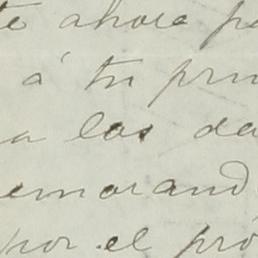 te ahora pa
á tu prim
a los da
emorand
por el pró